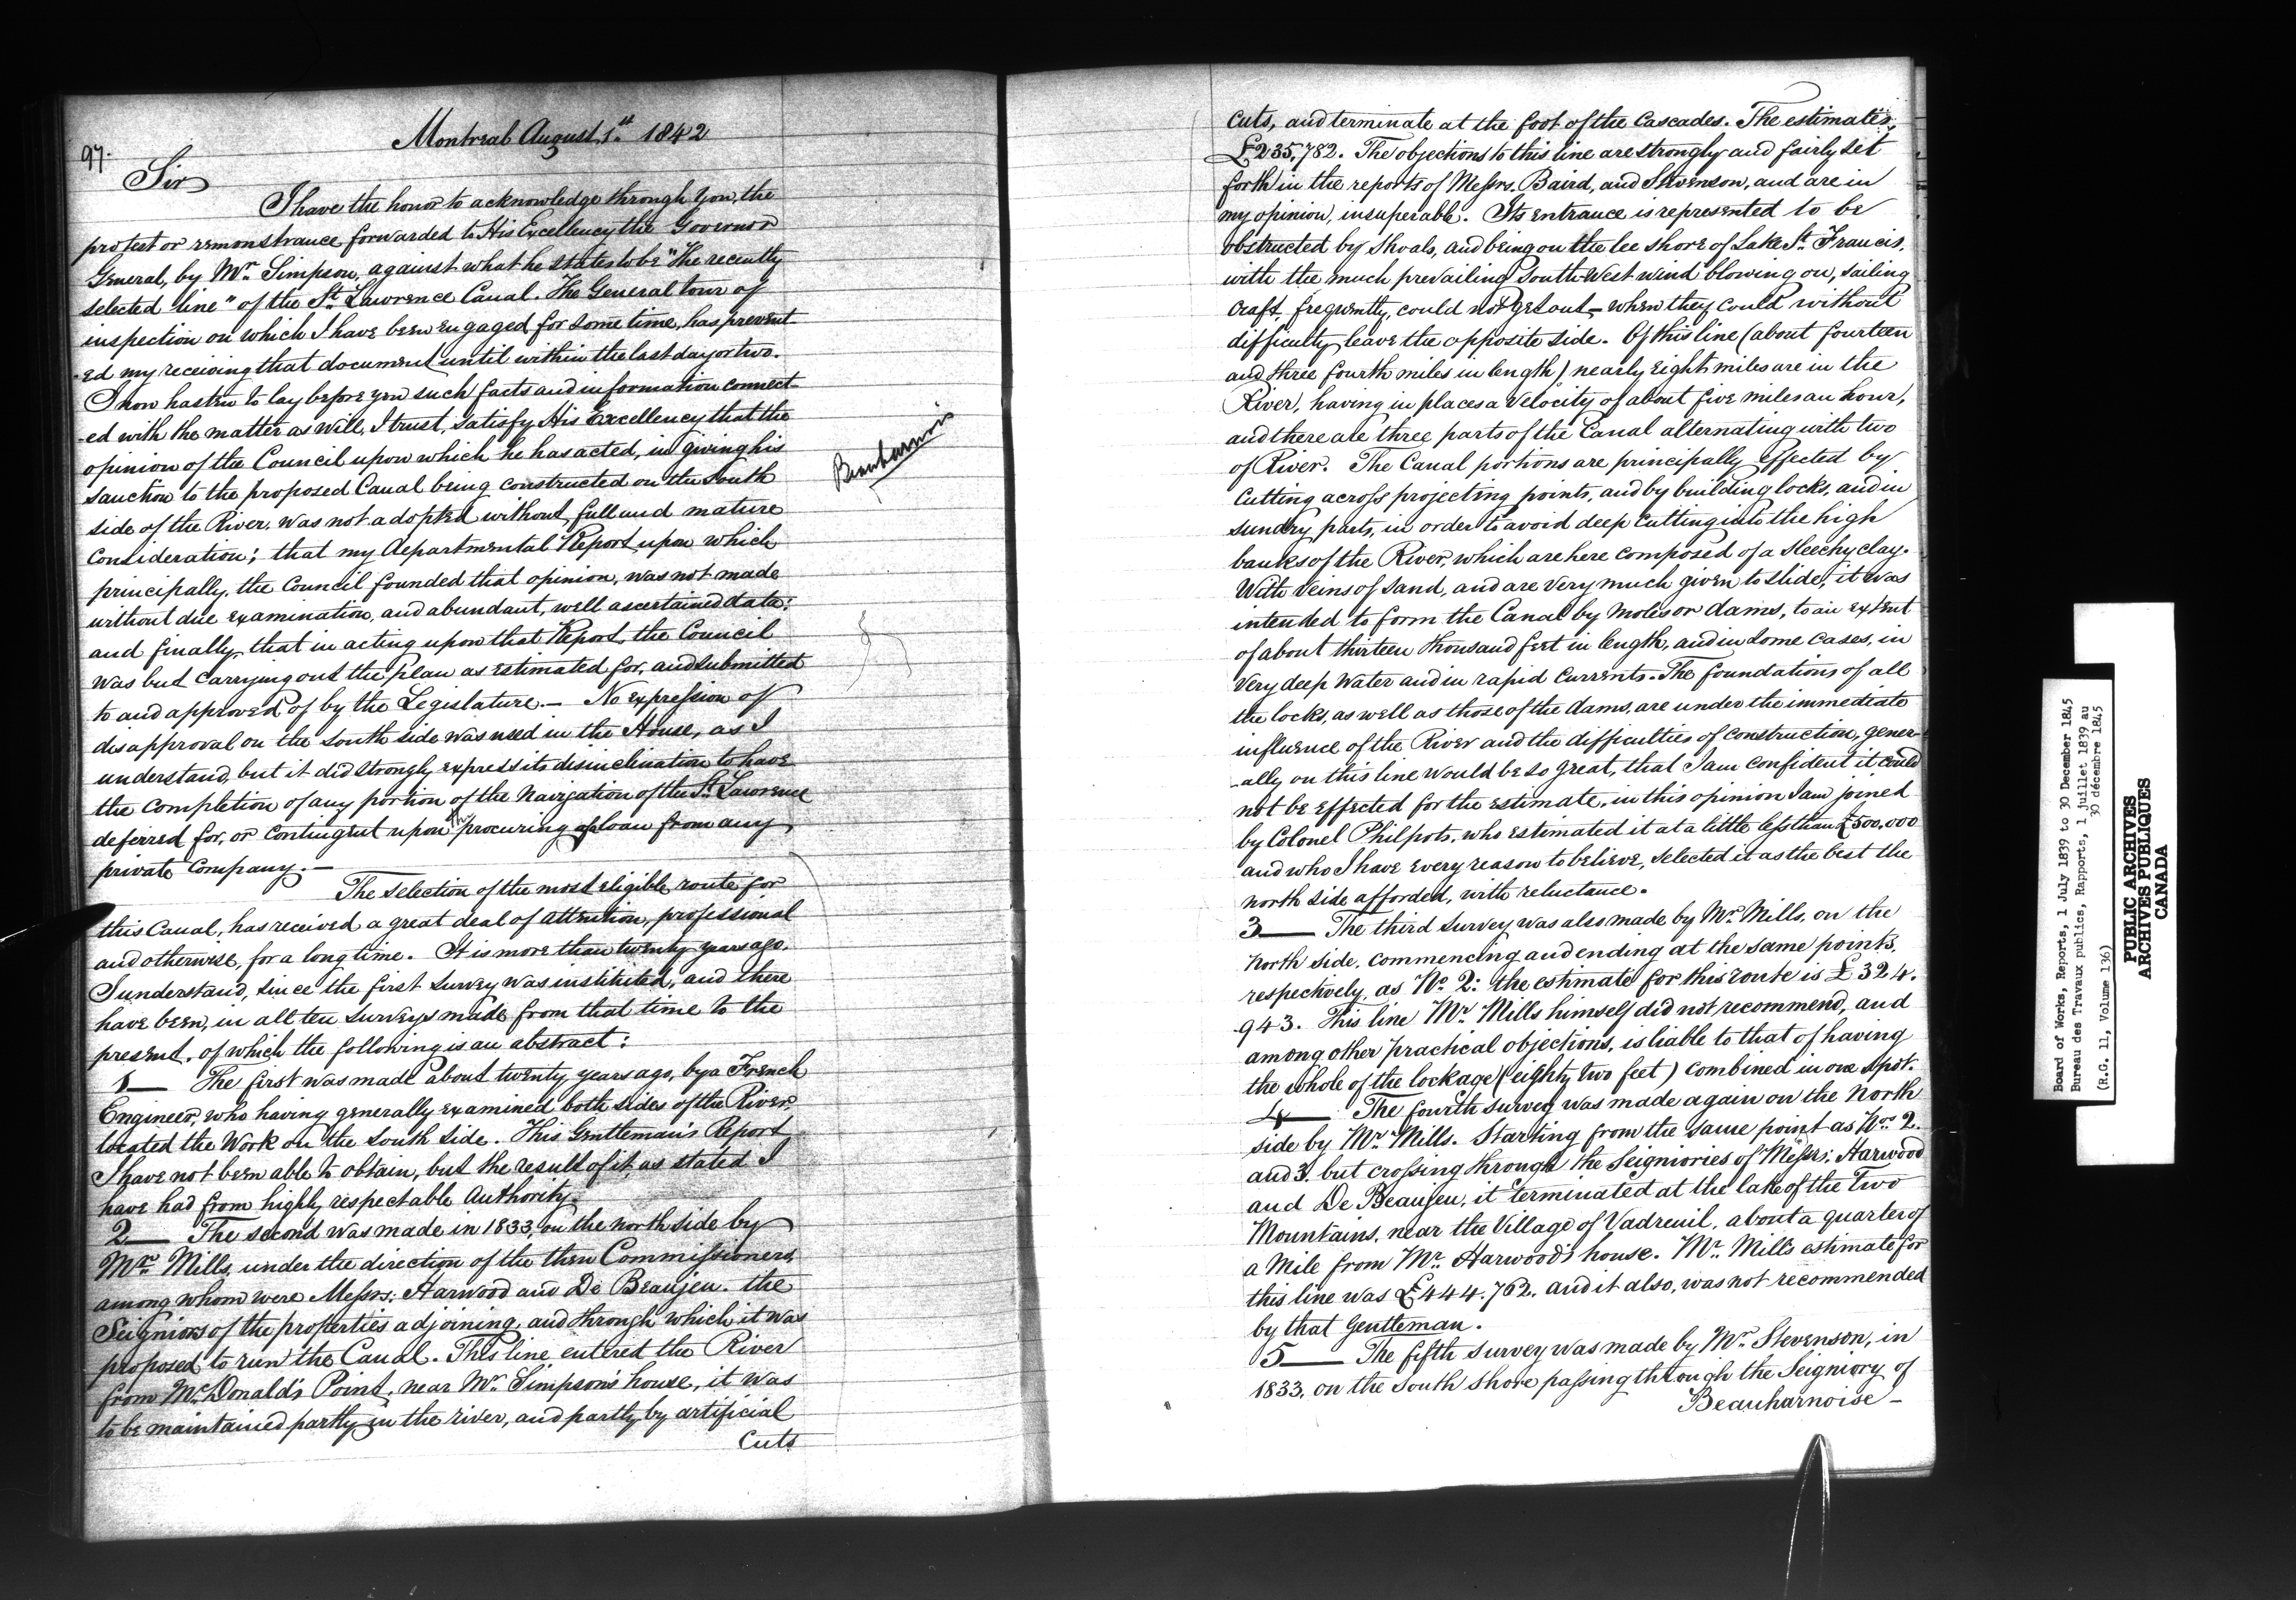 97.
Montreal August 1st 1842
Sir
I have the honor to acknowledge through you, the
protest or remonstrance forwarded to His Excellency the Governor
General, by Mr. Simpson, against what he states to be "the recently
selected line" of the St. Lawrence Canal. The General tour of
inspection on which I have been engaged for some time, has prevent-
-ed my receiving that document until within the last day or two.
I now hasten to lay before you such facts and information connect-
-ed with the matter as will, I trust, satisfy His Excellency that the
opinion of the Council upon which he has acted, in giving his
sanction to the proposed Canal being constructed on the South
side of the River, was not adopted without full and mature
consideration; that my departmental Report upon which
principally, the Council founded that opinion, was not made
without due examination, and abundant, well ascertained data;
and finally, that in acting upon that Report, the Council
was but carrying out the plan as estimated for, and submitted
to and approved of by the Legislature.— No expression of
disapproval on the South side was used in the House, as I
understand, but it did strongly express its disinclination to have
the completion of any portion of the Navigation of the St. Lawrence
deferred for, or contingent upon the procuring of loan from any
private Company.—
The selection of the most eligible route for
this Canal, has received a great deal of attention, professional
and otherwise, for a long time. It is more than twenty years ago,
I understand, since the first survey was instituted, and there
have been, in all ten surveys made from that time to the
present, of which the following is an abstract:
1— The first was made about twenty years ago, by a French
Engineer, who having generally examined both sides of the River,
located the Work on the South side. This Gentleman's Report
I have not been able to obtain, but the result of it, as stated I
have had from highly respectable Authority.
2— The second was made in 1833, on the north side by
Mr. Mills, under the direction of the then Commissioners,
among whom were Messrs. Harwood and De Beaujeu, the
Seigniors of the properties adjoining, and through which it was
proposed to run the Canal. This line entered the River
from McDonald's Point, near Mr. Simpson's house, it was
to be maintained partly in the river, and partly by artificial
Cuts
Beauharnois
Cuts, and terminate at the foot of the Cascades. The estimate is,
£235,782. The objections to this line are strongly and fairly set
forth in the reports of Messrs. Baird, and Stevenson, and are in
my opinion, insuperable. Its entrance is represented to be
obstructed by Shoals, and being on the lee shore of Lake St. Francis,
with the much prevailing South West wind blowing on, sailing
craft, frequently, could not get out,— when they could without
difficulty leave the opposite side. Of this line (about fourteen
and three fourth miles in length) nearly eight miles are in the
River, having in places a velocity of about five miles an hour,
and there are three parts of the Canal alternating with two
of River. The Canal portions are principally effected by
Cutting across projecting points, and by building locks, and in
sundry parts, in order to avoid deep cutting into the high
banks of the River, which are here composed of a sleechy clay.
With veins of Sand, and are very much given to slide, it was
intended to form the Canal by moles or dams, to an extent
of about thirteen thousand feet in length, and in some cases, in
very deep Water and in rapid Currents. The foundations of all
the locks, as well as those of the dams, are under the immediate
influence of the River and the difficulties of construction, gener-
-ally on this line would be so great, that I am confident it could
not be effected for the estimate, in this opinion I am joined
by Colonel Philpots, who estimated it at a little less than £500,000
and who I have every reason to believe, selected it as the best the
north side afforded, with reluctance.
3— The third survey was also made by Mr. Mills, on the
north side, commencing and ending at the same points,
respectively, as No. 2: the estimate for this route is £324.
943. This line Mr. Mills himself did not recommend, and
among other practical objections, is liable to that of having
the whole of the lockage (eighty two feet) combined in one spot.
4— The fourth survey was made again on the north
side by Mr. Mills. Starting from the same point as Nos. 2.
and 3. but crossing through the Seigniories of Messrs: Harwood
and De Beaujeu, it terminated at the lake of the Two
Mountains, near the Village of Vadreuil, about a quarter of
a mile from Mr. Harwood's house. Mr. Mills estimate for
this line was £444.762. and it also, was not recommended
by that Gentleman.
5— The fifth survey was made by Mr. Stevenson, in
1833, on the South Shore passing through the Seigniory of
Beauharnoise—
Board of Works, Reports, 1 July 1839 to 30 December 1845
Bureau des Travaux publics, Rapports, 1 juillet 1839 au
30 décembre 1845
(R.G. 11, Volume 136)
PUBLIC ARCHIVES
ARCHIVES PUBLIQUES
CANADA